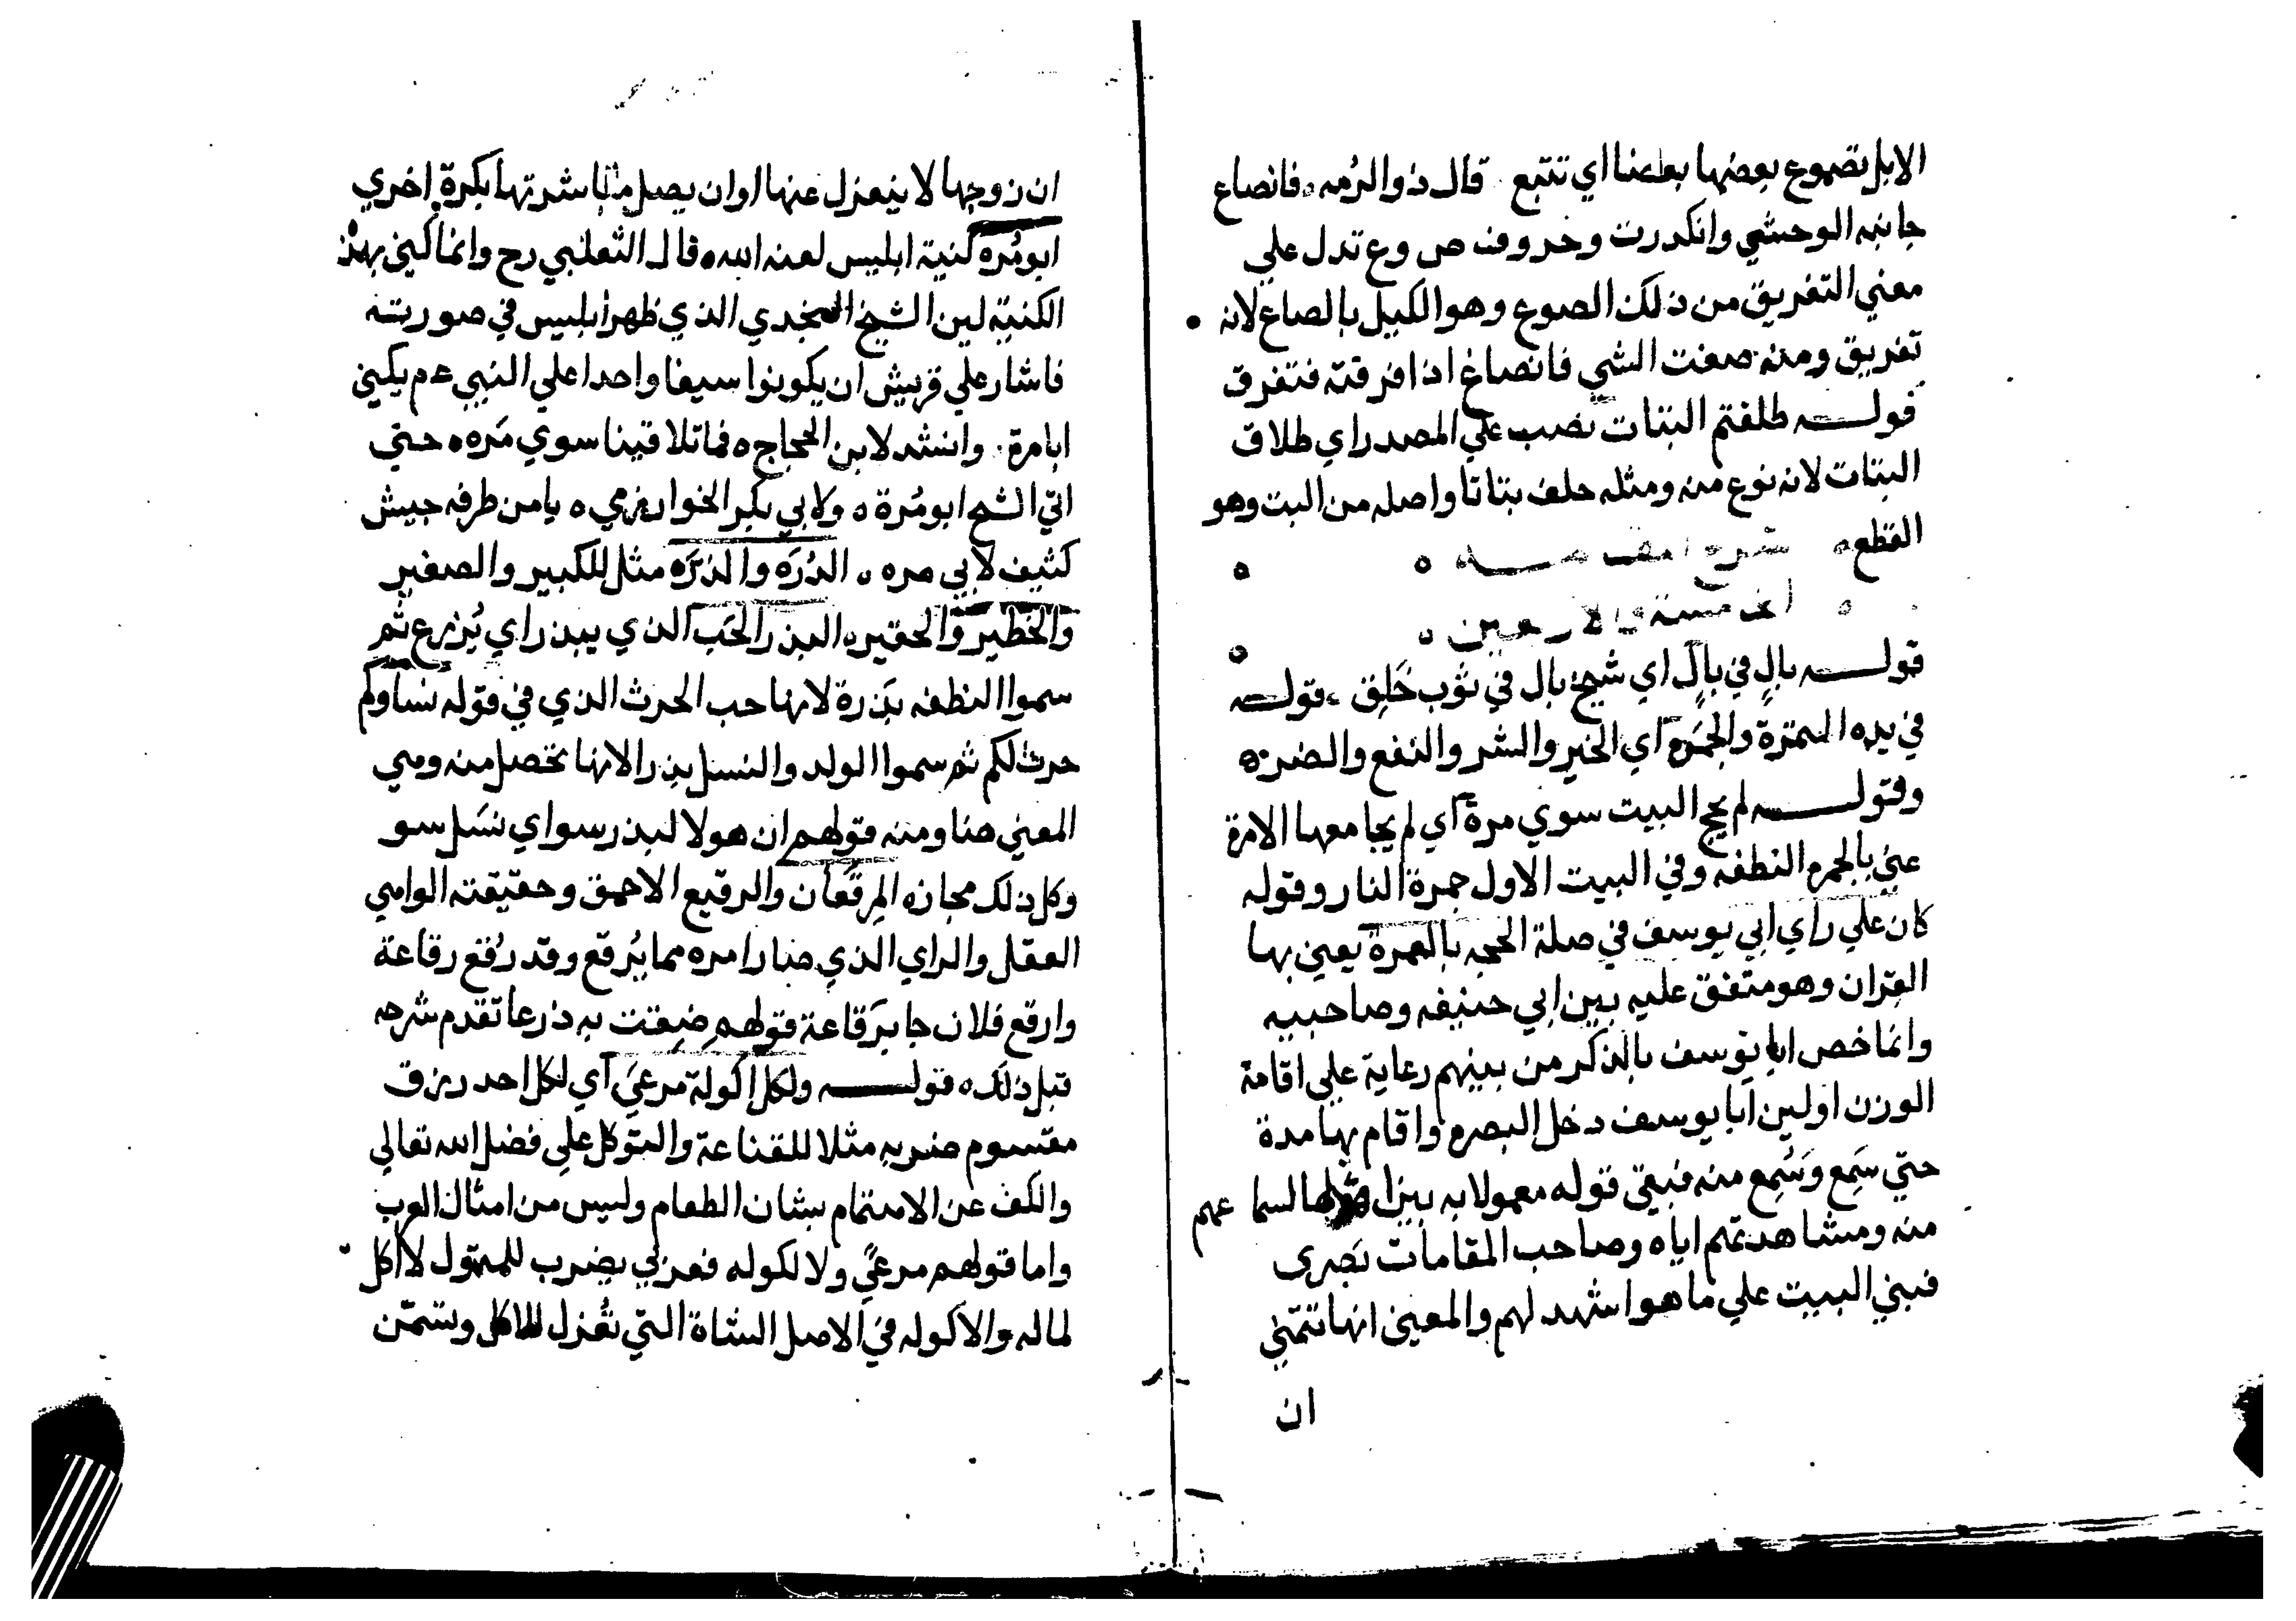 الابل تصوع بعضها بعضا اي تتبع قال ذو الرمه فانصاع
جانبه الوحشي وانكدرت وحروف ص وع تدل علي
معني التفريق من ذلك الصوع وهو الكيل بالصاع لانه
تفريق ومنه صعت الشي فانصاع اذا فرقته فتفرق
قوله طلقتم البتات نصب علي المصدر اي طلاق
البتات لانه نوع منه ومثله حلف بتاتا واصله من البت وهو
القطع شرح
الخامسة والاربعين
قوله بالٍ في بالٍ اي شيخ بال في ثوب خَلِق قوله
في يده التمرة والجمره اي الخير والشر والنفع والضره
وقوله لم يحج البيت سوي مرة اي لم يجامعها الا مرة
عني بالجمره النطفه وفي البيت الاول جمرة النار وقوله
كان علي راي ابي يوسف في صلة الحجه بالعمرة يعني بها
القِران وهو متفق عليه بين ابي حنيفه وصاحبيه
وانما خص ابا يوسف بالذكر من بينهم رعاية علي اقامة
الوزن اولين ابا يوسف دخل البصره واقام بها مدة
حتي سَمِع وسُمِع منه فبقي قوله معمولا به بين لسماعهم
منه ومشاهدتهم اياه وصاحب المقامات بَصري
فبني البيت علي ما هو اشهد لهم والمعني انها تتمني
ان
ان زوجها لا ينعزل عنها اوان يصل مباشرتها بكرة اخري
ابو مُره كنية ابليس لعنه الله قال الثعلبي رح وانما كني بهذه
الكنية لين الشيخ النجدي الذي ظهر ابليس في صورته
فاشار علي قريش ان يكونوا سيفا واحدا علي النبي عم يكني
ابا مرة وانشد لابن الحجاج ه فما تلاقينا سوي مَره ه حتي
اتي الشيخ ابو مُرة ه ولابي بكر الخوارزمي ه يا من طرفه جيش
كثيف لابي مره ه الدُرَه والذَرَه مثل للكبير والصغير
والخطير والحقيره البذر الحَب الذي يبذر اي يُزرع ثم
سموا النطفه بَذرة لانها حب الحرث الذي في قوله نساوكم
حرث لكم ثم سموا الولد والنسل بذرا لانها تحصل منه وهي
المعني هنا ومنه قولهم ان هولا لبذر سو اي نَسل سو
وكل ذلك مجازه المِرقَعان والرقيع الاحمق وحقيقته الواهي
العقل والراي الذي صار امره مما يُرقع وقد رُقع رقاعة
وارقع فلان جا برَقاعة قولهم ضِيقت به ذرعا تقدم شرحه
قبل ذلك ه قوله ولكل اكولة مرعَي اي لكل احد رزق
مقسوم ضربه مثلا للقناعة والتوكل علي فضل الله تعالي
والكف عن الاهتمام بشان الطعام وليس من امثال العرب
واما قولهم مرعيً ولا اكوله فعربي يضرب للمتمول لا اكل
لماله والاكوله في الاصل الشاة التي تُعزل للاكل وتسمّن